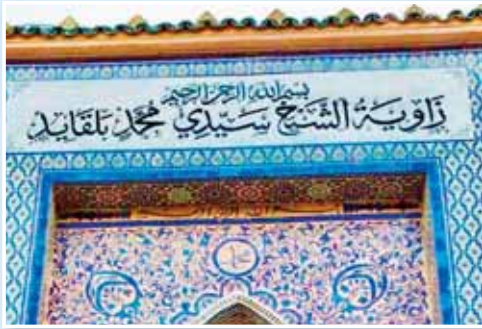 بسم الله الرحمن الرحيم
زاوية الشيخ سيدي محمد بلقايد